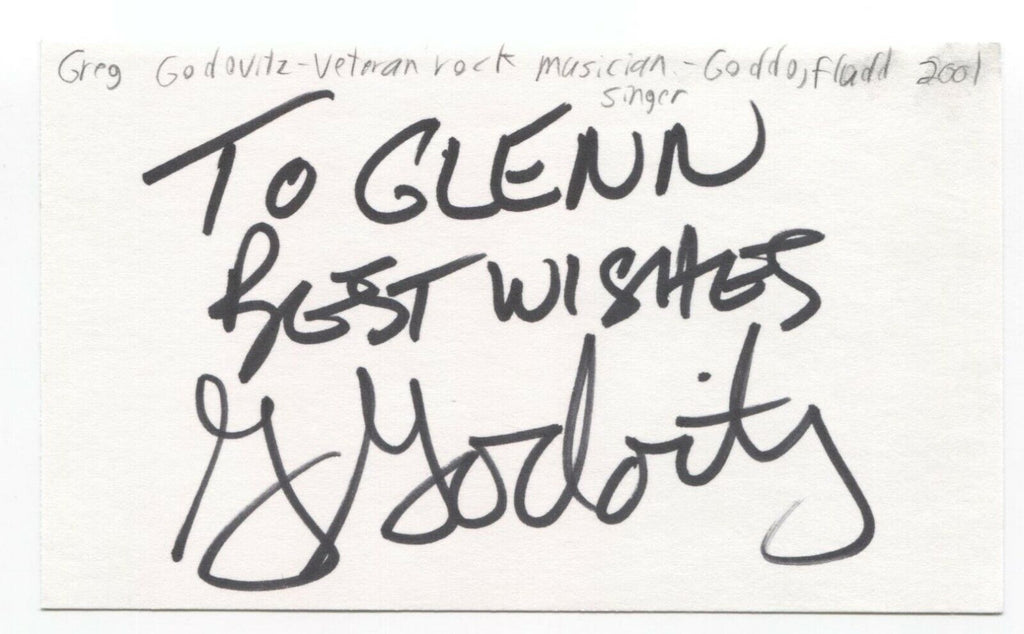 Greg Godovitz-Veteran rock musician - Goddo, Fludd 2001
singer
TO GLENN
BEST WISHES
G Godovitz